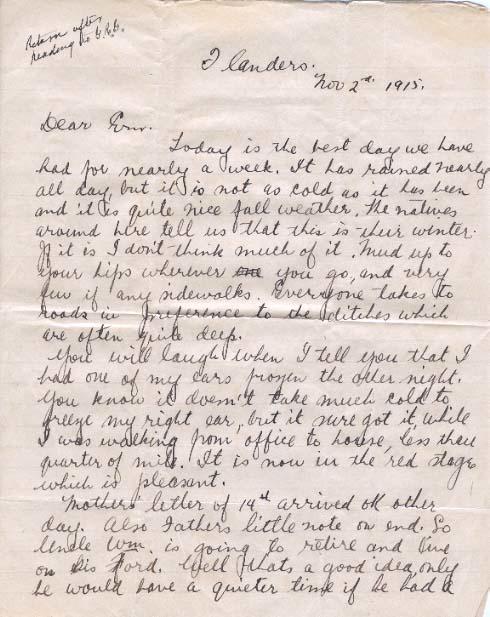 Return after
reading to G.R.G.
Flanders.
Nov 2nd. 1915.
Dear Ern.
Today is the best day we have
had for nearly a week. It has rained nearly
all day, but it is not as cold as it has been
and it is quite nice fall weather. The natives
around here tell us that this is their winter.
If it is I don't think much of it. Mud up to
your hips wherever you go, and very
few if any sidewalks. Everyone takes to
roads in preference to the ditches which
are often quite deep.
You will laugh when I tell you that I
had one of my ears frozen the other night.
You know it doesn't take much cold to
freeze my right ear, but it sure got it, while
I was walking from office to house, less than
quarter of mile. It is now in the red stage
which is pleasant.
Mothers letter of 14th arrived OK other
day. Also Fathers little note on end. So
Uncle Wm. is going to retire and live
on his Ford. Well thats a good idea, only
he would have a quieter time if he had a